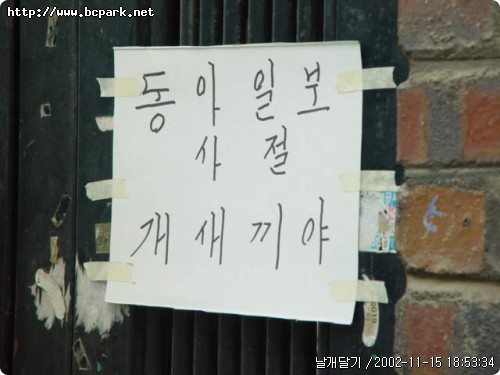 http://www.bcpark.net
동아일보
사절
개새끼야
날개달기 /2002-11-15 18:53:34